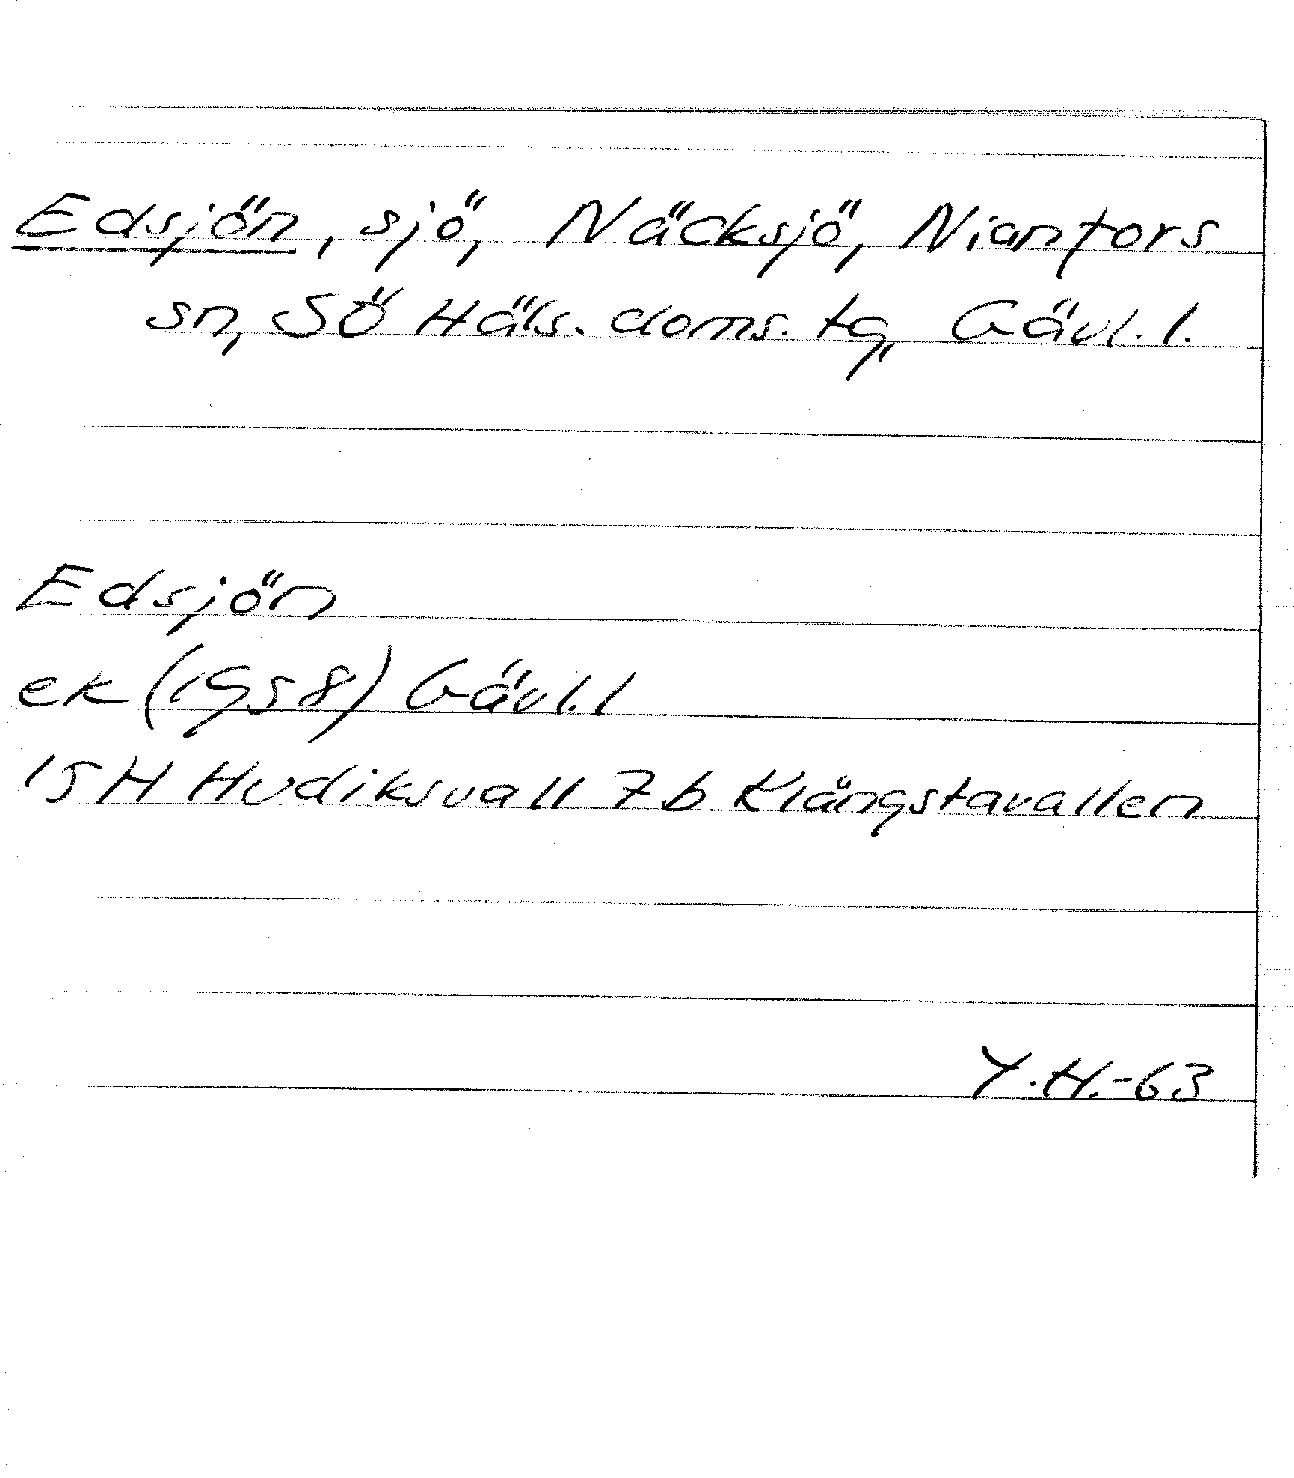 Edsjön, sjö, Näcksjö, Nianfors
sn, SÖ Häls. doms. tg, Gävl. l.
Edsjön
ek (1958) Gävl. l
15H Hudiksvall 7b Klångstavallen
Y.H.-63